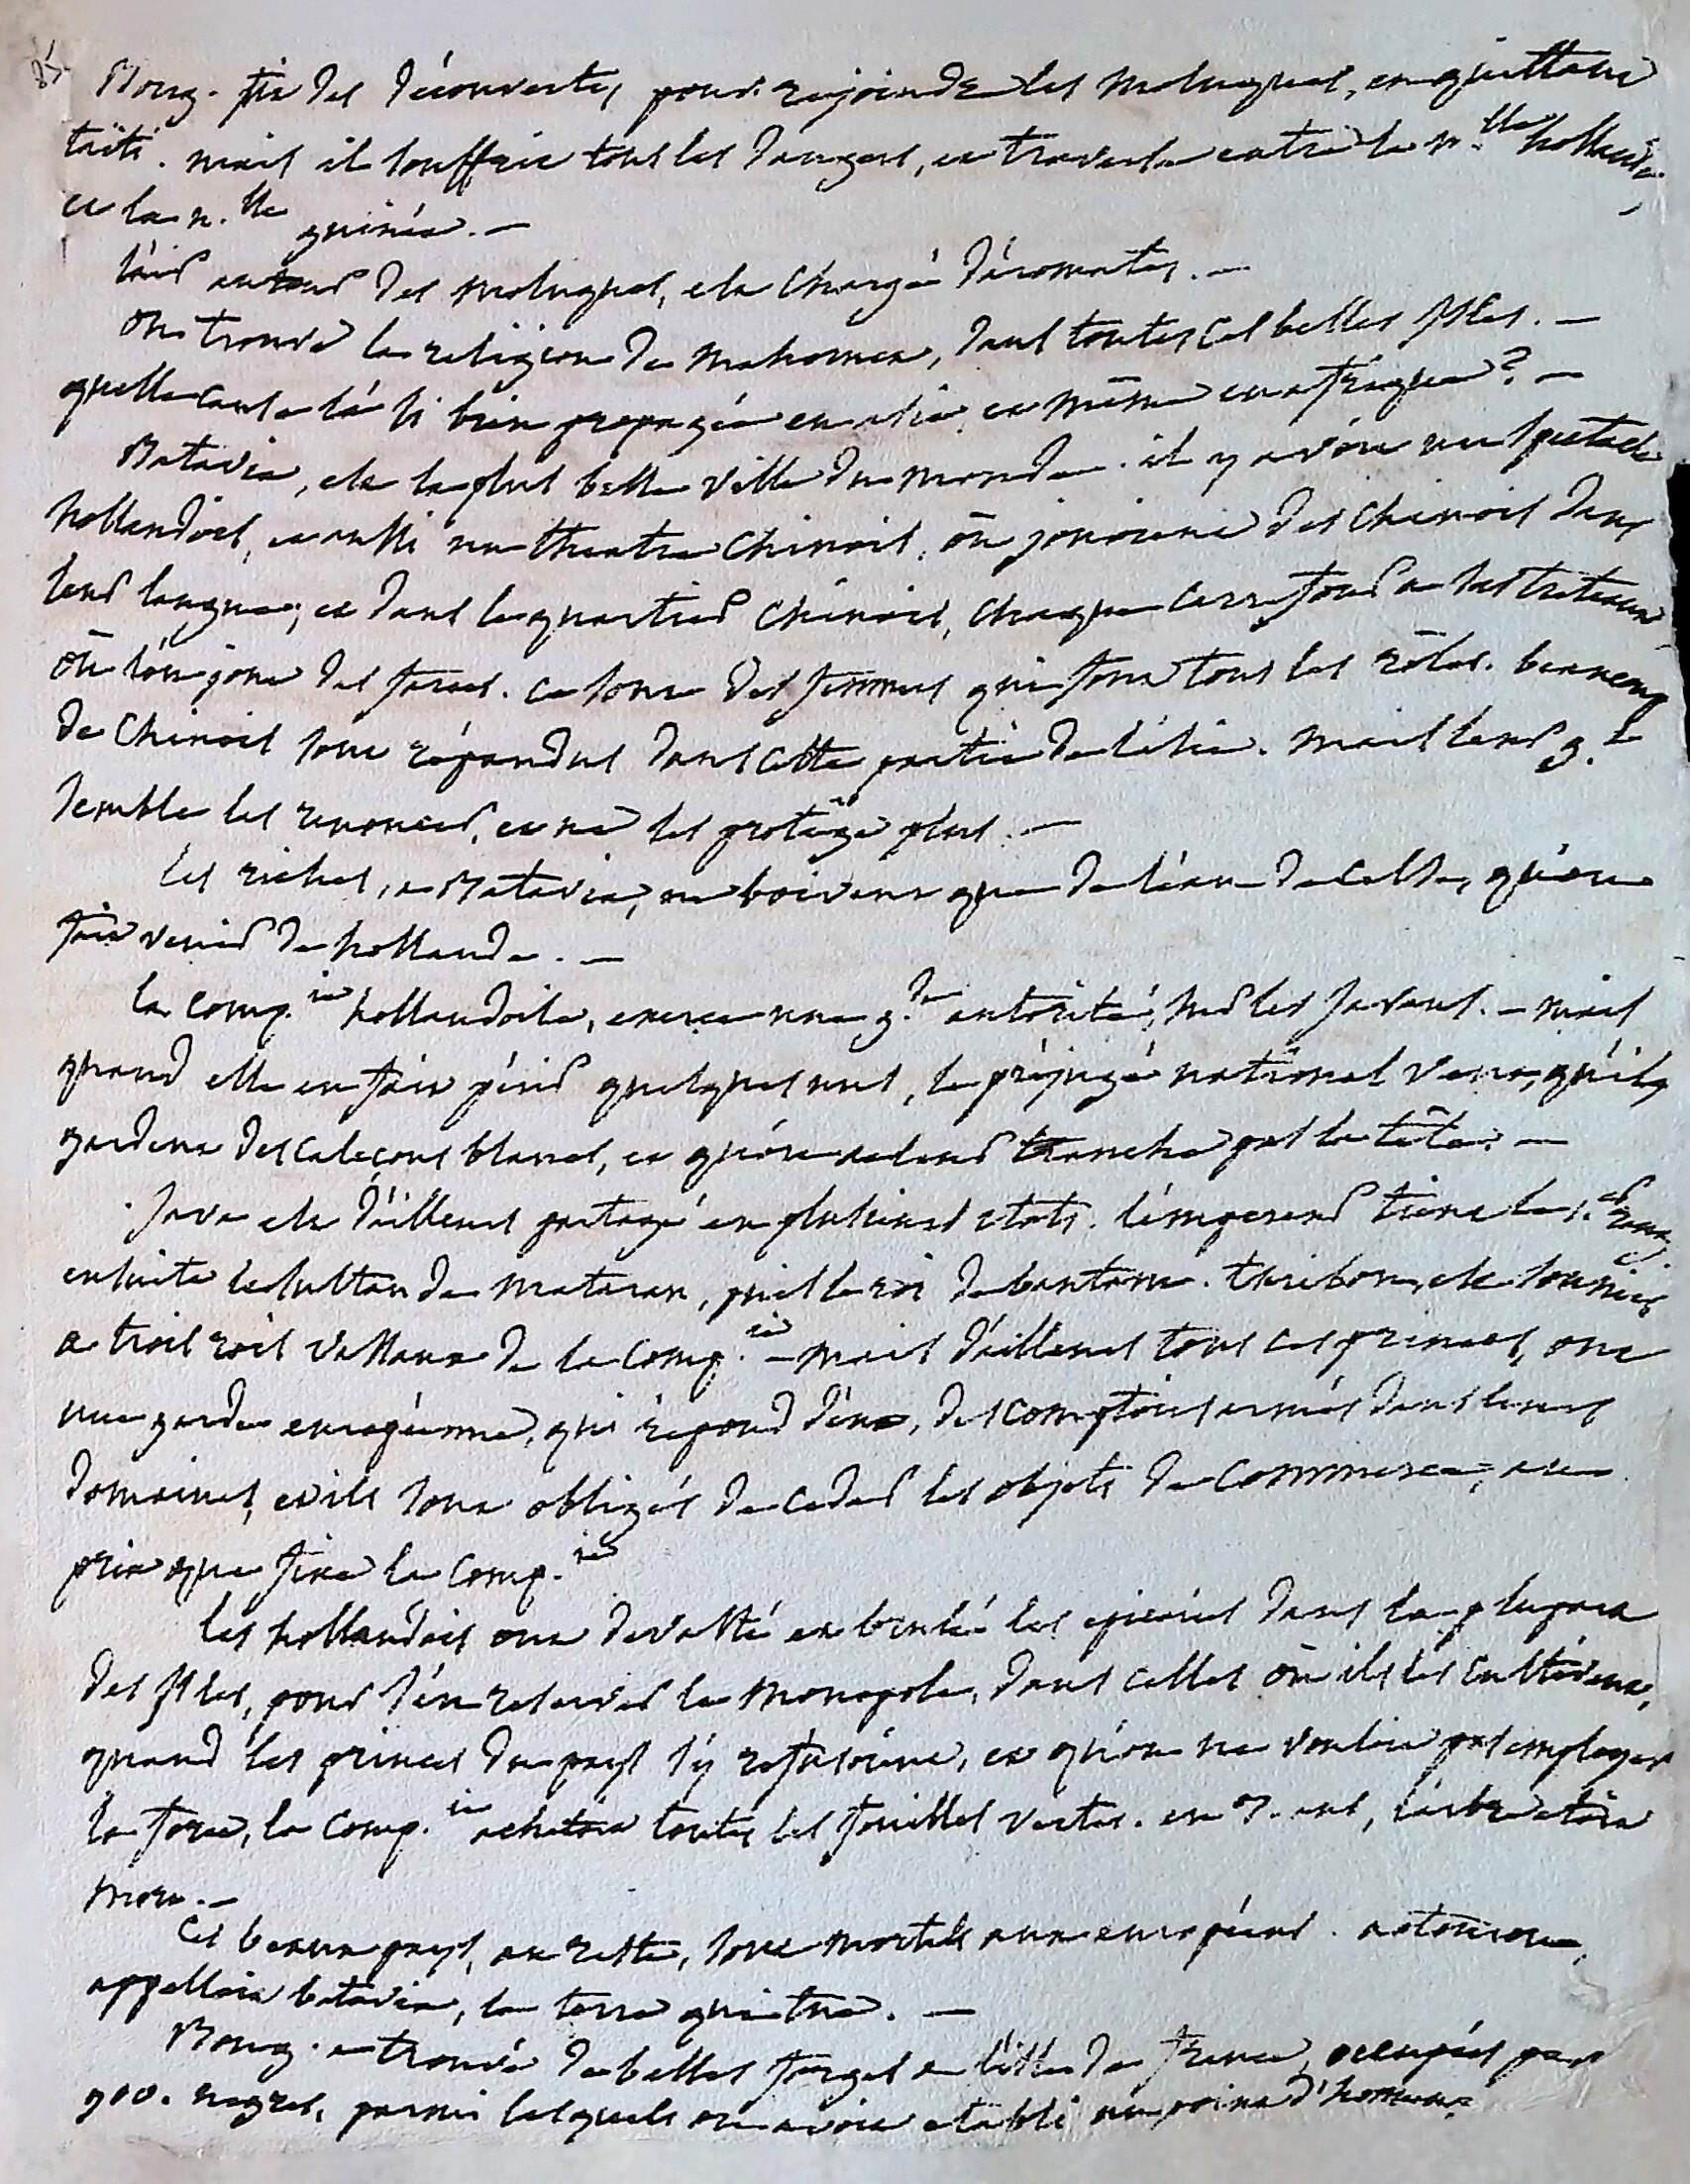 85
Boug. fit des découvertes pour rejoindre les moluques, en quittant
taïti. mais il souffrit tous les dangers, en traversa entre la n.lle hollande,
et la n.lle guinée. —
l'air autour des moluques, est chargé d'aromates. —
on trouve la religion de mahomet, dans toutes ces belles Isles. —
quelle cause l'a si bien propagée en asie et même en afrique? —
Batavia, est la plus belle ville du monde. il y avoit un spectacle
hollandois, et aussi un theatre chinois, où jouoient des chinois dans
leur langue; et dans le quartier chinois, chaque carrefour a ses treteaux
où l'on joue des farces. ce sont des femmes qui font tous les rôles. beaucoup
de chinois sont répandus dans cette partie de l'asie. mais leur g.t
semble les renoncer, et ne les protège plus. —
les riches, a Batavia, ne boivent que de l'eau de Selse, qu'on
fait venir de hollande. —
la comp.ie hollandoise, exerce une g.de autorité, sur les javans. — mais
quand elle en fait périr quelques uns, le préjugé national veut, qu'ils
gardent des caleçons blancs, et qu'on ne leur tranche pas la tête. —
Java est d'ailleurs partagé en plusieurs etats. l'empereur tient le 1.er rang,
ensuite le sultan de mataran, puis le roi de bantam. tseribon, est soumis
a trois rois vassaux de la comp.ie — mais d'ailleurs tous ces princes, ont
une garde européenne, qui répond d'eux, des comptoirs armés dans leurs
domaines, et ils sont obligés de ceder les objets de commerce, au
prix que fixe la comp.ie
les hollandois ont devasté et brulé les epiceries dans la plupart
des Isles, pour s'en reserver le monopole, dans celles où ils les cultivent,
quand les princes du pays s'y refusoient, et qu'on ne vouloit pas employer
la force, la comp.ie achetoit toutes les feuilles vertes. en 3. ans, l'arbre etoit
mort. —
Ces beaux pays, au reste, sont mortels aux européens. aotourou,
appelloit batavia, la terre qui tue. —
Boug. a trouvé de belles forges a l'isle de france, occupées par
900. negres, parmi lesquels on avoit etabli un point d'honneur